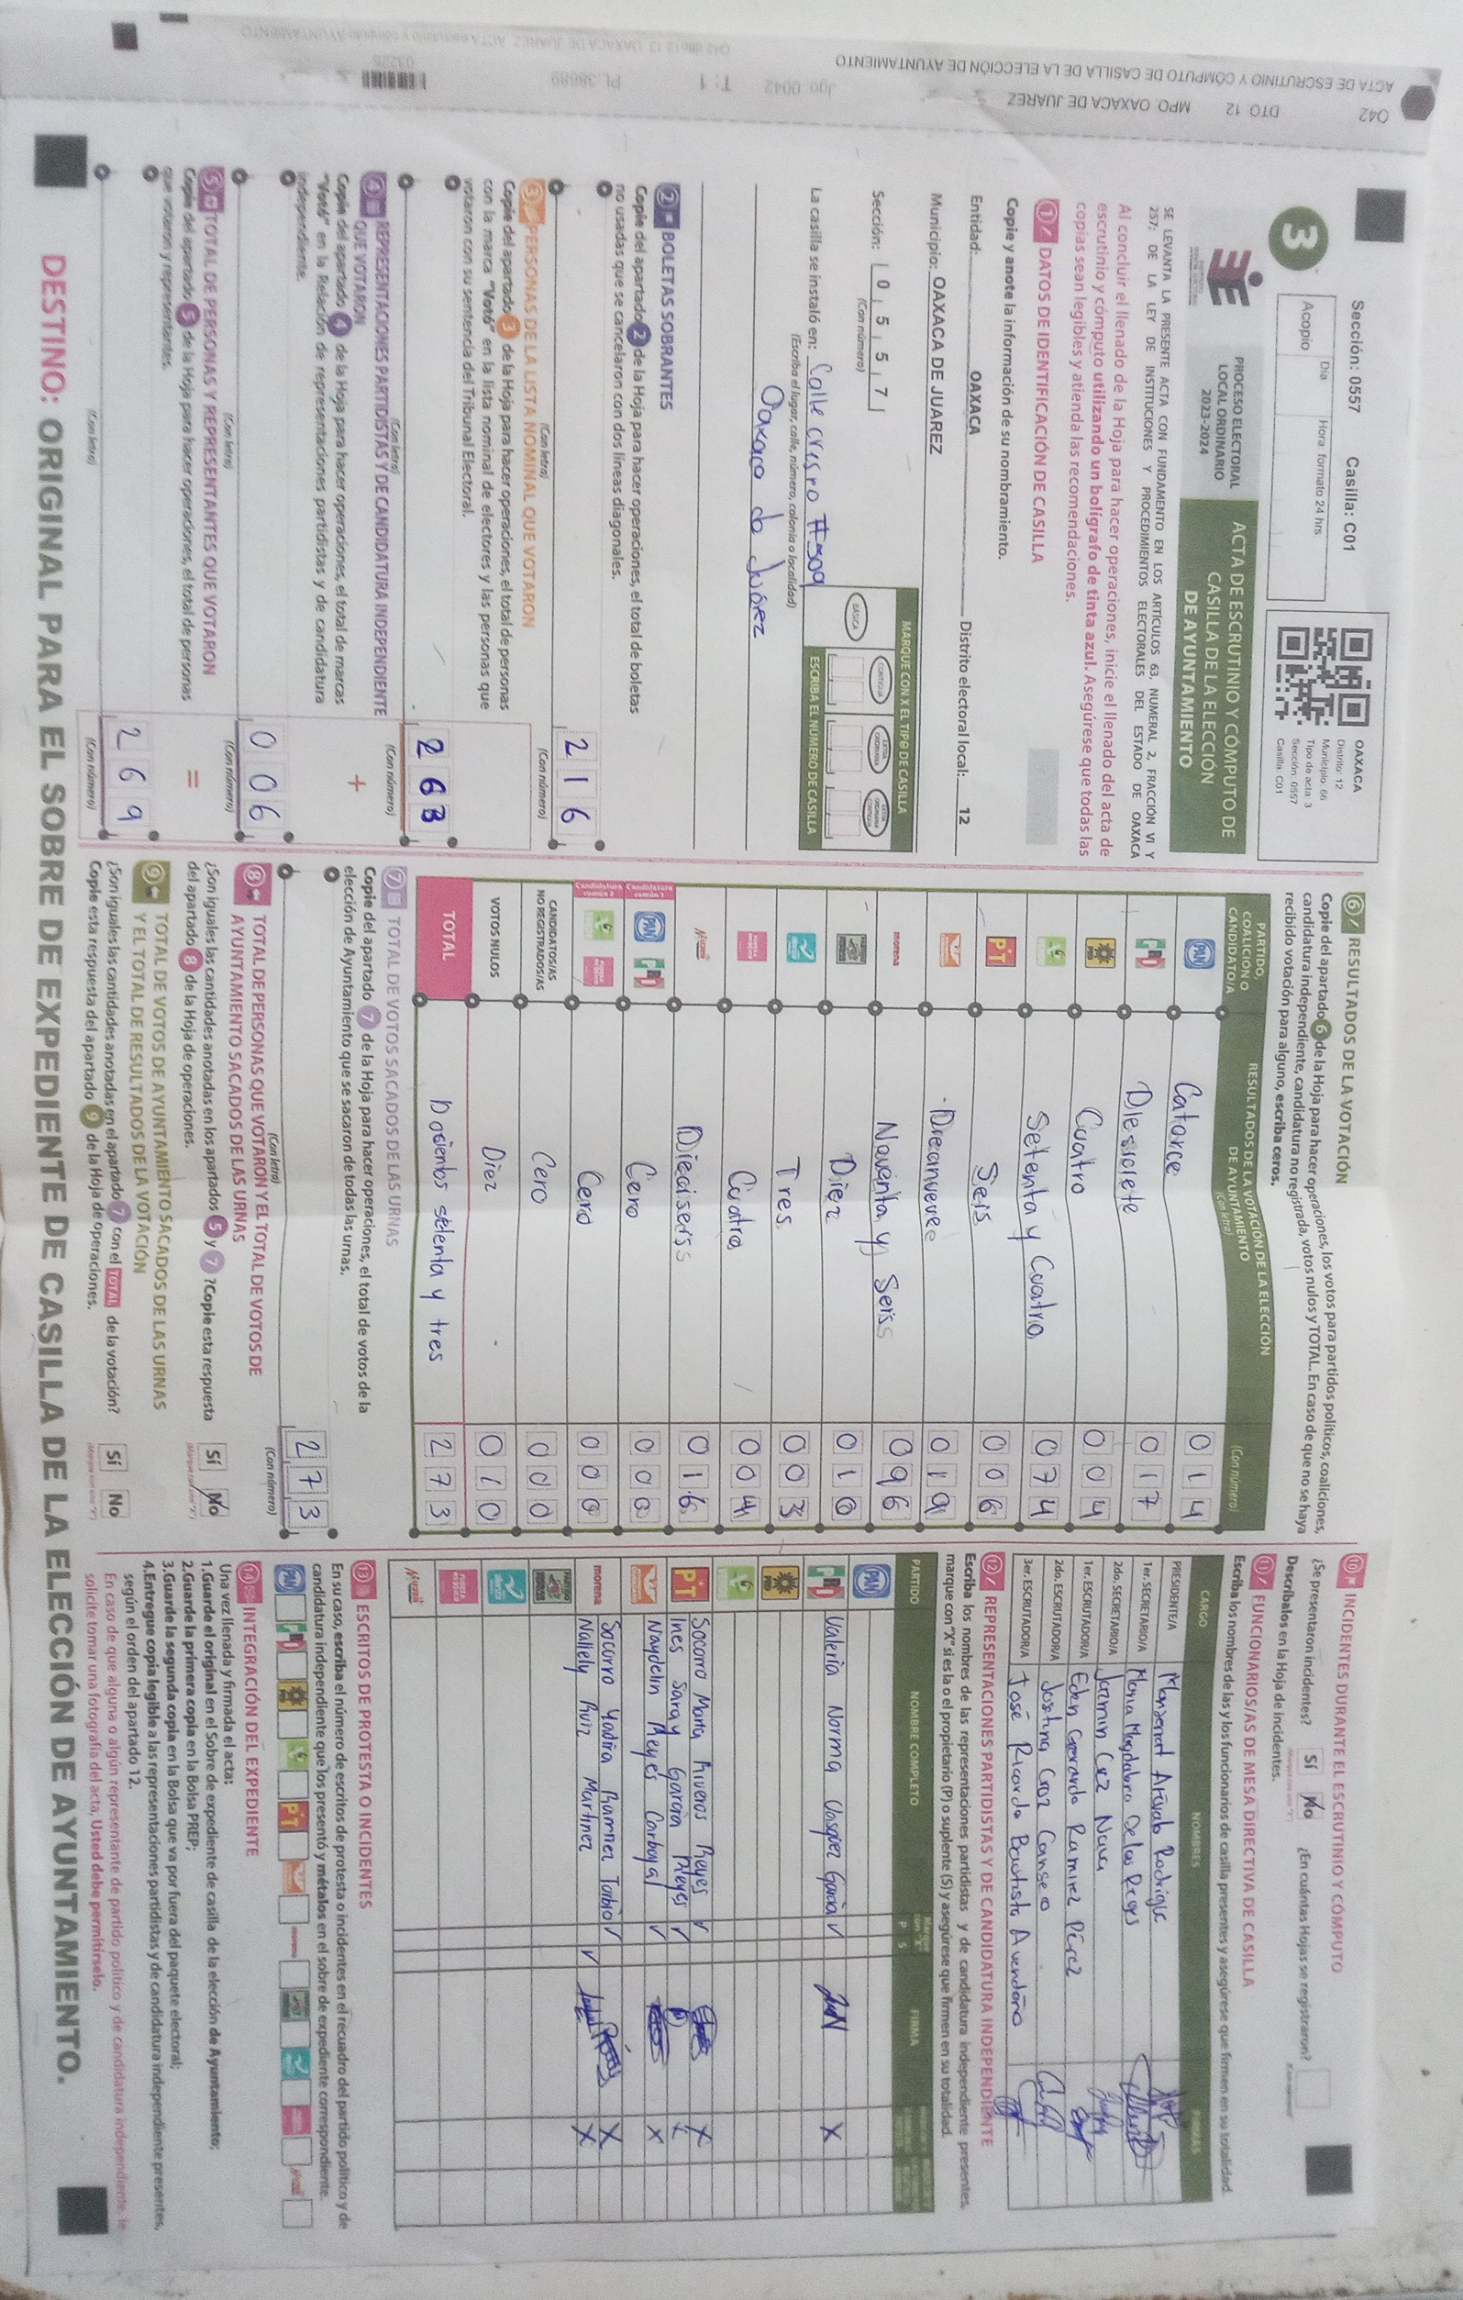 Sección: 0557 Casilla: C01
3
Acopio
Día
Hora: formato 24 hrs
OAXACA
Distrito: 12
Municipio: 66
Tipo de acta: 3
Sección: 0557
Casilla: C01
PROCESO ELECTORAL
LOCAL ORDINARIO
2023-2024
ACTA DE ESCRUTINIO Y CÓMPUTO DE
CASILLA DE LA ELECCIÓN
DE AYUNTAMIENTO
SE LEVANTA LA PRESENTE ACTA CON FUNDAMENTO EN LOS ARTÍCULOS 63, NUMERAL 2, FRACCIÓN VI Y
257; DE LA LEY DE INSTITUCIONES Y PROCEDIMIENTOS ELECTORALES DEL ESTADO DE OAXACA
Al concluir el llenado de la Hoja para hacer operaciones, inicie el llenado del acta de
escrutinio y cómputo utilizando un bolígrafo de tinta azul. Asegúrese que todas las
copias sean legibles y atienda las recomendaciones.
1 DATOS DE IDENTIFICACIÓN DE CASILLA
Copie y anote la información de su nombramiento.
Entidad: OAXACA Distrito electoral local: 12
Municipio: OAXACA DE JUAREZ
Sección: 0 5 5 7
(Con número)
MARQUE CON X EL TIPO DE CASILLA
BÁSICA
CONTIGUA
ESCRIBA EL NÚMERO DE CASILLA
La casilla se instaló en: Calle crespo #
(Escriba el lugar, calle, número, colonia o localidad)
Oaxaca de Juárez
2 BOLETAS SOBRANTES
Copie del apartado 2 de la Hoja para hacer operaciones, el total de boletas
no usadas que se cancelaron con dos líneas diagonales.
216
(Con letra) (Con número)
3 PERSONAS DE LA LISTA NOMINAL QUE VOTARON
Copie del apartado 3 de la Hoja para hacer operaciones, el total de personas
con la marca "Votó" en la lista nominal de electores y las personas que
votaron con su sentencia del Tribunal Electoral.
263
(Con letra) (Con número)
4 REPRESENTACIONES PARTIDISTAS Y DE CANDIDATURA INDEPENDIENTE
QUE VOTARON
+
Copie del apartado 4 de la Hoja para hacer operaciones, el total de marcas
"Votó" en la Relación de representaciones partidistas y de candidatura
independiente.
006
(Con letra) (Con número)
5 TOTAL DE PERSONAS Y REPRESENTANTES QUE VOTARON
=
Copie del apartado 5 de la Hoja para hacer operaciones, el total de personas
que votaron y representantes.
269
(Con letra) (Con número)
6 RESULTADOS DE LA VOTACIÓN
Copie del apartado 6 de la Hoja para hacer operaciones, los votos para partidos políticos, coaliciones,
candidatura independiente, candidatura no registrada, votos nulos y TOTAL. En caso de que no se haya
recibido votación para alguno, escriba ceros.
PARTIDO,
COALICIÓN O
CANDIDATO/A
RESULTADOS DE LA VOTACIÓN DE LA ELECCIÓN
DE AYUNTAMIENTO
(Con letra)
(Con número)
PAN Catorce 014
PRI Diesisiete 017
PRD Cuatro 004
Setenta y Cuatro 074
PT Seis 006
Diecinueve 019
morena Noventa y Seis 096
Diez 010
Tres 003
Cuatro 004
Dieciseis 016
Candidatura común 1 PAN PRI Cero 000
Candidatura común 2 Cero 000
CANDIDATOS/AS
NO REGISTRADOS/AS Cero 000
VOTOS NULOS Diez 010
TOTAL Docientos setenta y tres 273
7 TOTAL DE VOTOS SACADOS DE LAS URNAS
Copie del apartado 7 de la Hoja para hacer operaciones, el total de votos de la
elección de Ayuntamiento que se sacaron de todas las urnas.
273
(Con letra) (Con número)
8 TOTAL DE PERSONAS QUE VOTARON Y EL TOTAL DE VOTOS DE
AYUNTAMIENTO SACADOS DE LAS URNAS
¿Son iguales las cantidades anotadas en los apartados 5 y 7 ?Copie esta respuesta
del apartado 8 de la Hoja de operaciones.
Sí No
9 TOTAL DE VOTOS DE AYUNTAMIENTO SACADOS DE LAS URNAS
Y EL TOTAL DE RESULTADOS DE LA VOTACIÓN
¿Son iguales las cantidades anotadas en el apartado 7 con el TOTAL de la votación?
Copie esta respuesta del apartado 9 de la Hoja de operaciones.
Sí No
10 INCIDENTES DURANTE EL ESCRUTINIO Y CÓMPUTO
¿Se presentaron incidentes? Sí No ¿En cuántas Hojas se registraron?
Descríbalos en la Hoja de incidentes.
11 FUNCIONARIOS/AS DE MESA DIRECTIVA DE CASILLA
Escriba los nombres de las y los funcionarios de casilla presentes y asegúrese que firmen en su totalidad.
CARGO NOMBRES FIRMAS
PRESIDENTE/A Monserrat Arevalo Rodriguez
1er. SECRETARIO/A Maria Magdalena De los Reyes
2do. SECRETARIO/A Jazmin Cruz Nava
1er. ESCRUTADOR/A Eden Gerardo Ramirez Pérez
2do. ESCRUTADOR/A Joshua Cruz Canseco
3er. ESCRUTADOR/A José Ricardo Bautista Avendaño
12 REPRESENTACIONES PARTIDISTAS Y DE CANDIDATURA INDEPENDIENTE
Escriba los nombres de las representaciones partidistas y de candidatura independiente presentes,
marque con "X" si es la o el propietario (P) o suplente (S) y asegúrese que firmen en su totalidad.
PARTIDO NOMBRE COMPLETO P S FIRMA
PAN
PRI Valeria Norma Vasquez Garcia X
PRD
PT Socorro Marta Riveros Reyes X
Ines Saray Garcia Reyes X
Naydelin Reyes Carbajal X
morena Socorro Yadira Ramirez Toribio X
Nallely Ruiz Martinez X
13 ESCRITOS DE PROTESTA O INCIDENTES
En su caso, escriba el número de escritos de protesta o incidentes en el recuadro del partido político y de
candidatura independiente que los presentó y métalos en el sobre de expediente correspondiente.
PAN PRI PRD PT morena
14 INTEGRACIÓN DEL EXPEDIENTE
Una vez llenada y firmada el acta:
1.Guarde el original en el Sobre de expediente de casilla de la elección de Ayuntamiento;
2.Guarde la primera copia en la Bolsa PREP;
3.Guarde la segunda copia en la Bolsa que va por fuera del paquete electoral;
4.Entregue copia legible a las representaciones partidistas y de candidatura independiente presentes,
según el orden del apartado 12.
En caso de que alguna o algún representante de partido político y de candidatura independiente, le
solicite tomar una fotografía del acta, Usted debe permitírselo.
DESTINO: ORIGINAL PARA EL SOBRE DE EXPEDIENTE DE CASILLA DE LA ELECCIÓN DE AYUNTAMIENTO.
042 DTO 12 MPO. OAXACA DE JUAREZ
ACTA DE ESCRUTINIO Y CÓMPUTO DE CASILLA DE LA ELECCIÓN DE AYUNTAMIENTO
Jgo. 0042 T: 1 PL:38689